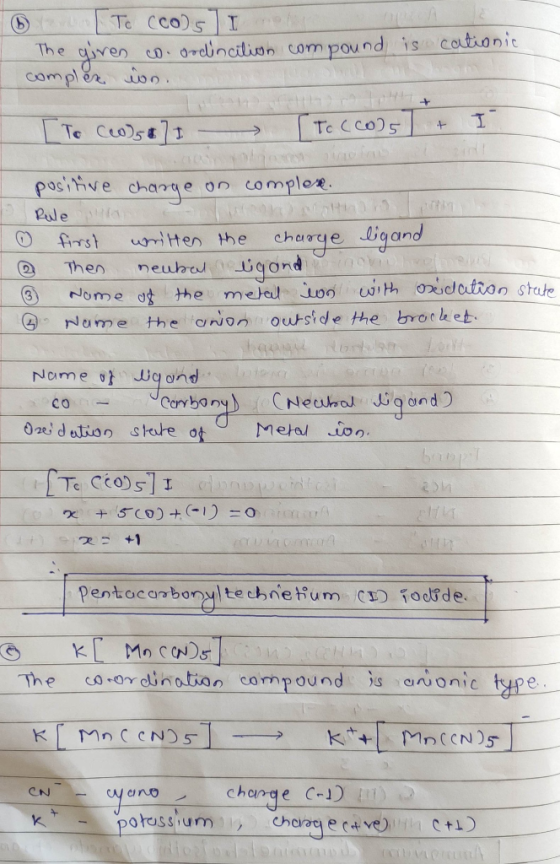 (b) [Tc (CO)5] I
The given co-ordination compound is cationic
complex ion.
[Tc (CO)5] I → [Tc (CO)5]+ + I-
positive charge on complex.
Rule
① first written the charge ligand
② Then neutral ligand
③ Name of the metal ion with oxidation state
④ Name the anion outside the bracket.
Name of ligand
CO - Carbonyl (Neutral ligand)
Oxidation state of Metal ion.
[Tc (CO)5] I
x + 5(0) + (-1) = 0
x = +1
∴ Pentacarbonyltechnetium (I) iodide.
(c) K[ Mn (CN)5]
The co-ordination compound is anionic type.
K[ Mn (CN)5] → K+ + [ Mn (CN)5]-
CN- - cyano, charge (-1)
K+ - potassium, charge (+ve) (+1)